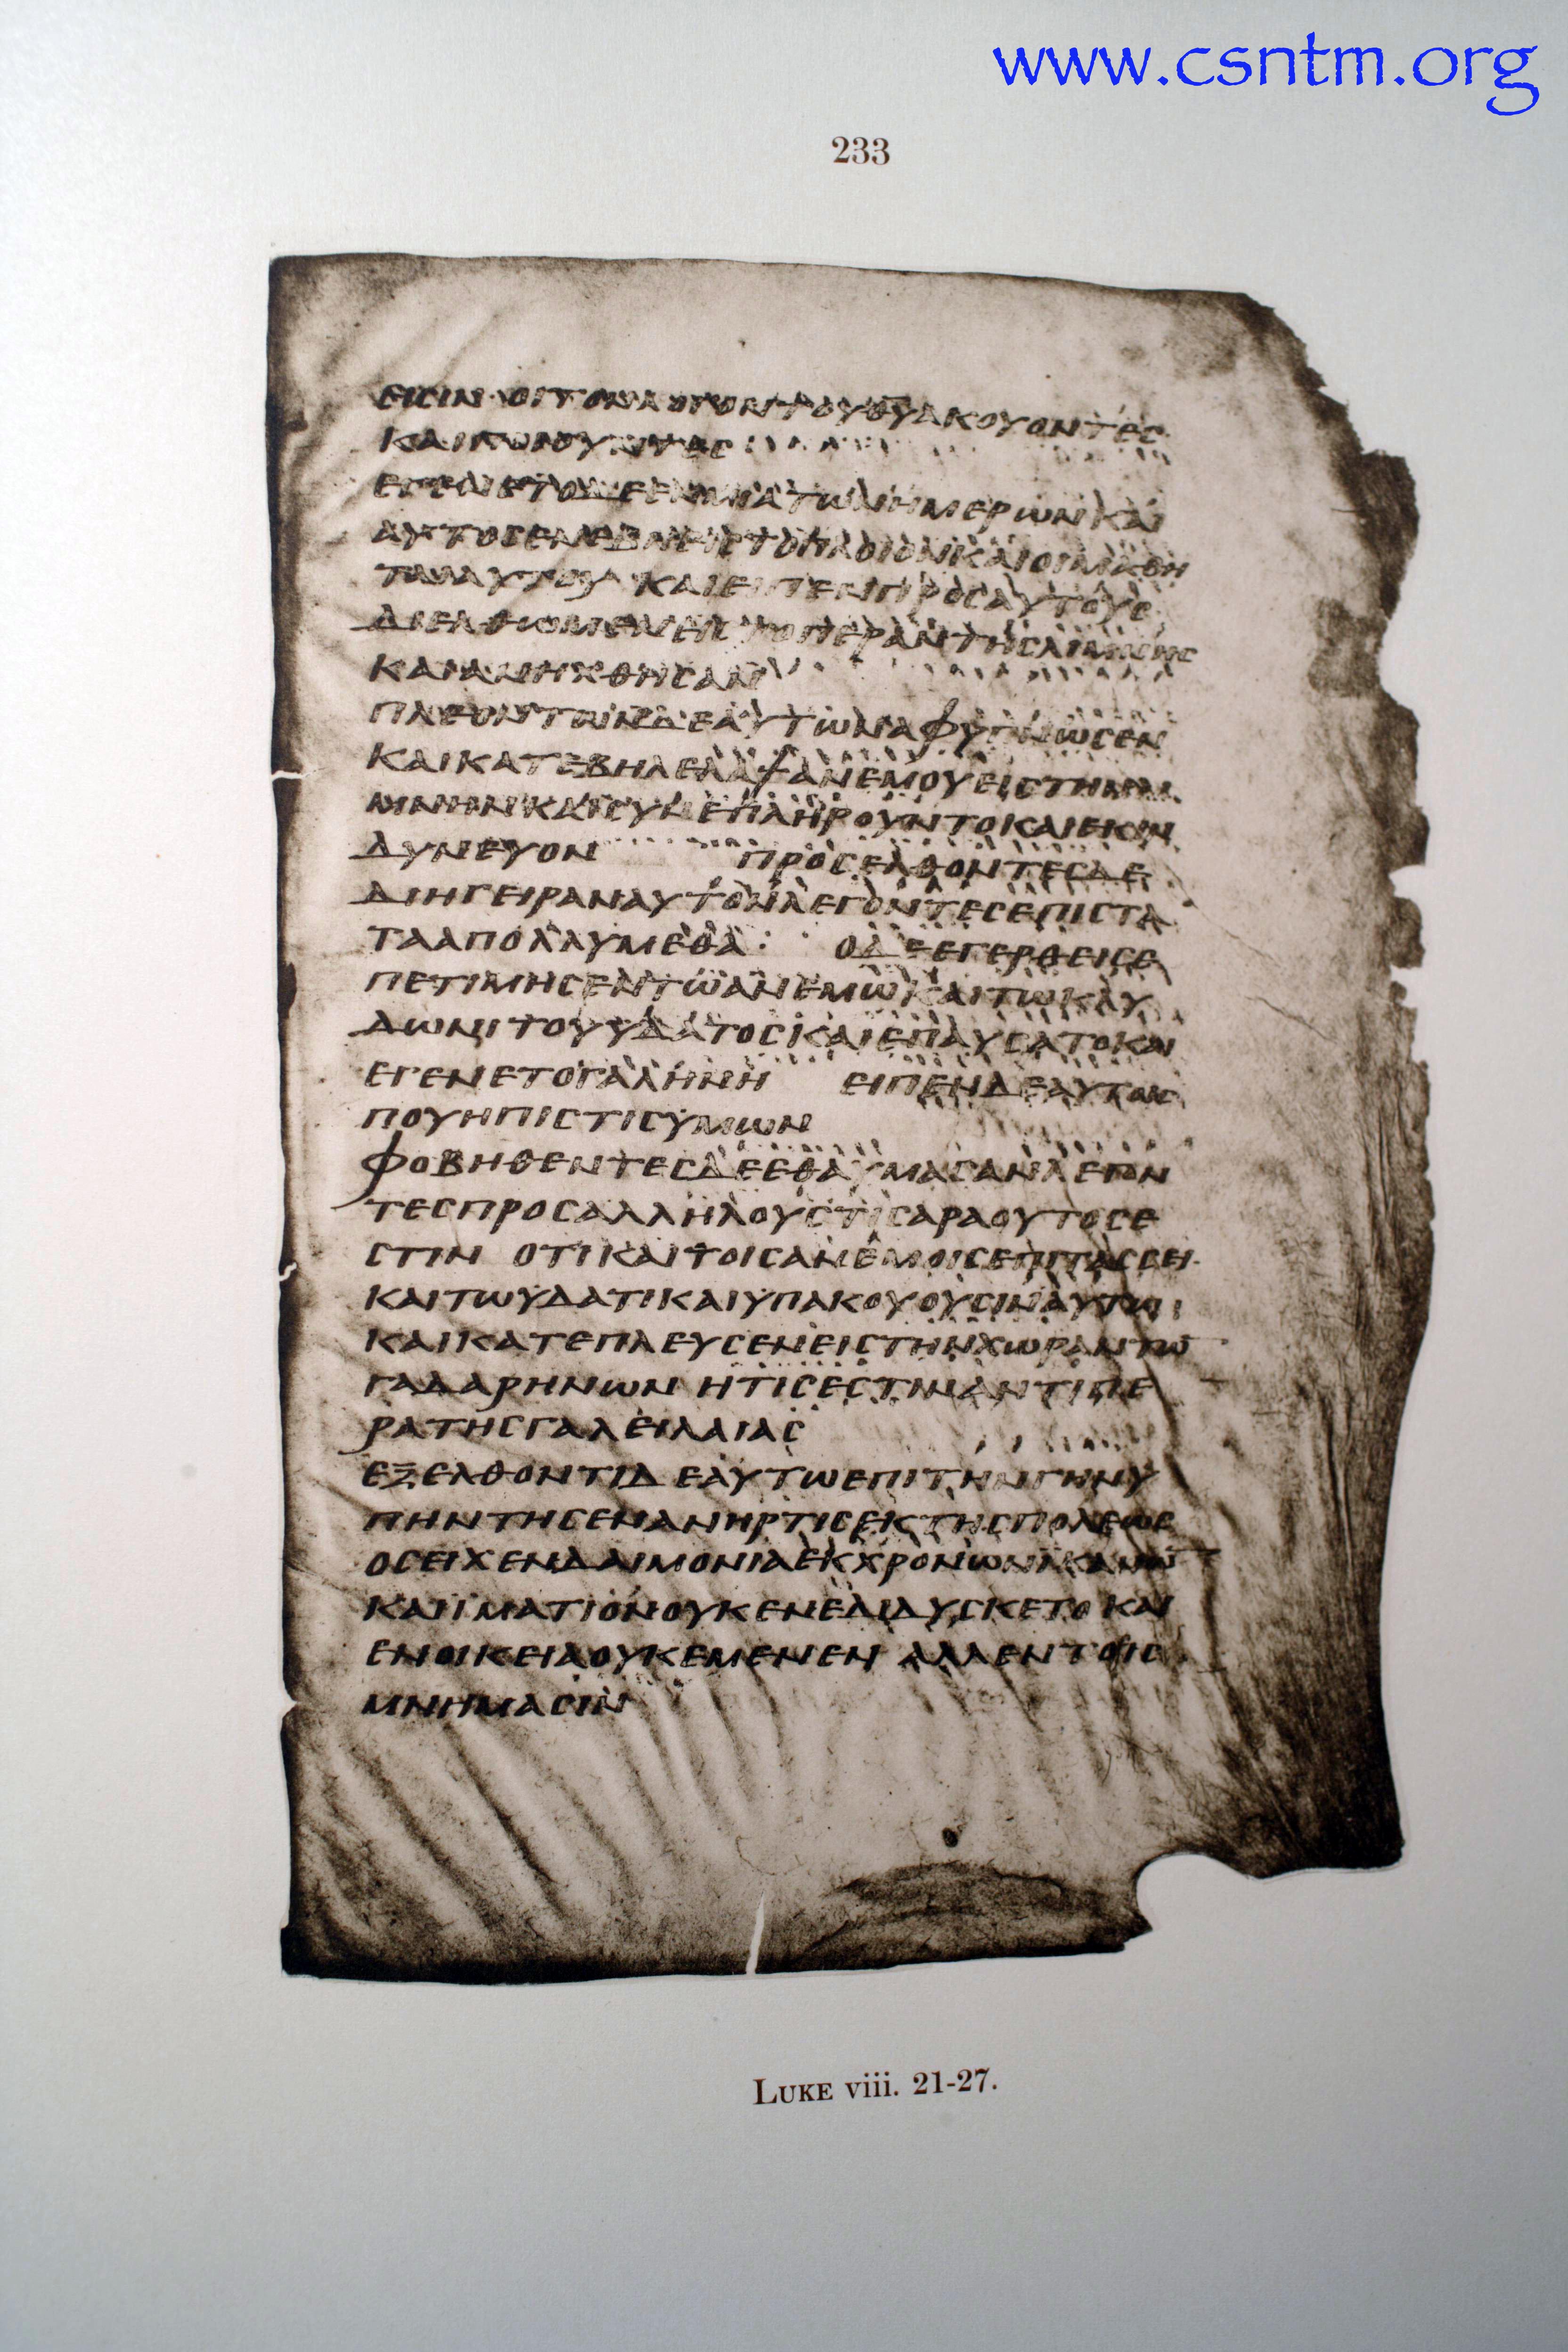 www.csntm.org
233
ΕΙCΙΝ ΟΙ ΤΟΝ ΛΟΓΟΝ ΤΟΥ ΘΥ ΑΚΟΥΟΝΤΕC
ΚΑΙ ΠΟΙΟΥΝΤΕC
ΕΓΕΝΕΤΟ ΔΕ ΕΝ ΜΙΑ ΤΩΝ ΗΜΕΡΩΝ ΚΑΙ
ΑΥΤΟC ΕΝΕΒΗ ΕΙC ΤΟ ΠΛΟΙΟΝ ΚΑΙ ΟΙ ΜΑΘΗ
ΤΑΙ ΑΥΤΟΥ ΚΑΙ ΕΙΠΕΝ ΠΡΟC ΑΥΤΟΥC
ΔΙΕΛΘΩΜΕΝ ΕΙC ΤΟ ΠΕΡΑΝ ΤΗC ΛΙΜΝΗC
ΚΑΙ ΑΝΗΧΘΗCΑΝ
ΠΛΕΟΝΤΩΝ ΔΕ ΑΥΤΩΝ ΑΦΥΠΝΩCΕΝ
ΚΑΙ ΚΑΤΕΒΗ ΛΕΛΑΨ ΑΝΕΜΟΥ ΕΙC ΤΗΝ ΛΙ
ΜΝΗΝ ΚΑΙ CΥΝΕΠΛΗΡΟΥΝΤΟ ΚΑΙ ΕΚΙΝ
ΔΥΝΕΥΟΝ ΠΡΟCΕΛΘΟΝΤΕC ΔΕ
ΔΙΗΓΕΙΡΑΝ ΑΥΤΟΝ ΛΕΓΟΝΤΕC ΕΠΙCΤΑ
ΤΑ ΑΠΟΛΛΥΜΕΘΑ Ο ΔΕ ΕΓΕΡΘΕΙC Ε
ΠΕΤΙΜΗCΕΝ ΤΩ ΑΝΕΜΩ ΚΑΙ ΤΩ ΚΛΥ
ΔΩΝΙ ΤΟΥ ΥΔΑΤΟC ΚΑΙ ΕΠΑΥCΑΤΟ ΚΑΙ
ΕΓΕΝΕΤΟ ΓΑΛΗΝΗ ΕΙΠΕΝ ΔΕ ΑΥΤΟΙC
ΠΟΥ Η ΠΙCΤΙC ΥΜΩΝ
ΦΟΒΗΘΕΝΤΕC ΔΕ ΕΘΑΥΜΑCΑΝ ΛΕΓΟΝ
ΤΕC ΠΡΟC ΑΛΛΗΛΟΥC ΤΙC ΑΡΑ ΟΥΤΟC Ε
CΤΙΝ ΟΤΙ ΚΑΙ ΤΟΙC ΑΝΕΜΟΙC ΕΠΙΤΑCCΕΙ
ΚΑΙ ΤΩ ΥΔΑΤΙ ΚΑΙ ΥΠΑΚΟΥΟΥCΙΝ ΑΥΤΩ
ΚΑΙ ΚΑΤΕΠΛΕΥCΕΝ ΕΙC ΤΗΝ ΧΩΡΑΝ ΤΩ̅
ΓΑΔΑΡΗΝΩΝ ΗΤΙC ΕCΤΙΝ ΑΝΤΙΠΕ
ΡΑ ΤΗC ΓΑΛΕΙΛΑΙΑC
ΕΞΕΛΘΟΝΤΙ ΔΕ ΑΥΤΩ ΕΠΙ ΤΗΝ ΓΗΝ Υ
ΠΗΝΤΗCΕΝ ΑΝΗΡ ΤΙC ΕΚ ΤΗC ΠΟΛΕΩC
ΟC ΕΙΧΕΝ ΔΑΙΜΟΝΙΑ ΕΚ ΧΡΟΝΩΝ ΙΚΑΝΩ̅
ΚΑΙ ΙΜΑΤΙΟΝ ΟΥΚ ΕΝΕΔΙΔΥCΚΕΤΟ ΚΑΙ
ΕΝ ΟΙΚΕΙΑ ΟΥΚ ΕΜΕΝΕΝ ΑΛΛ ΕΝ ΤΟΙC
ΜΝΗΜΑCΙΝ
LUKE viii. 21-27.